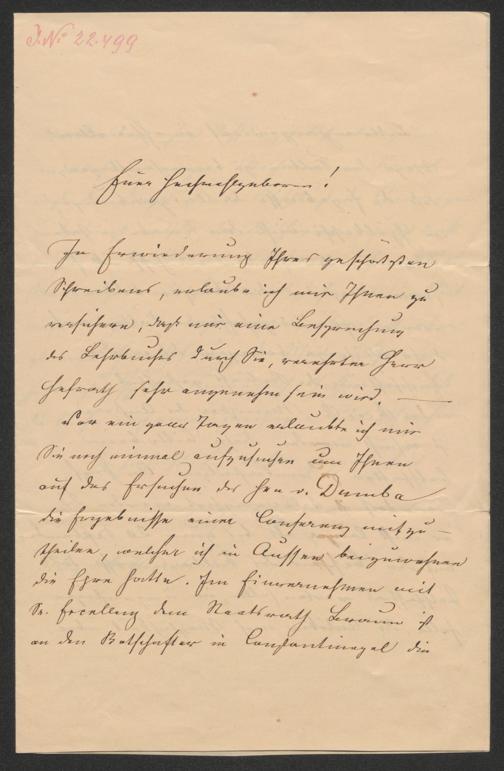 J. No 22.499
Euer Hochwohlgeboren!
In Erwiederung Ihres geschätzten
Schreibens, erlaube ich mir Ihnen zu
versichern, daß mir eine Besprechung
des Lehrbuches durch Sie, verehrter Herr
Hofrath sehr angenehm sein wird. —
Vor ein paar Tagen erlaubte ich mir
Sie noch einmal aufzusuchen um Ihnen
auf das Ersuchen des Hrn v. Dumba
die Ergebnisse einer Conferenz mitzu-
theilen, welcher ich in Aussee beizuwohnen
die Ehre hatte. Im Einvernehmen mit
Sr. Excellenz dem Staatsrath Braun ist
an den Botschafter in Constantinopel die